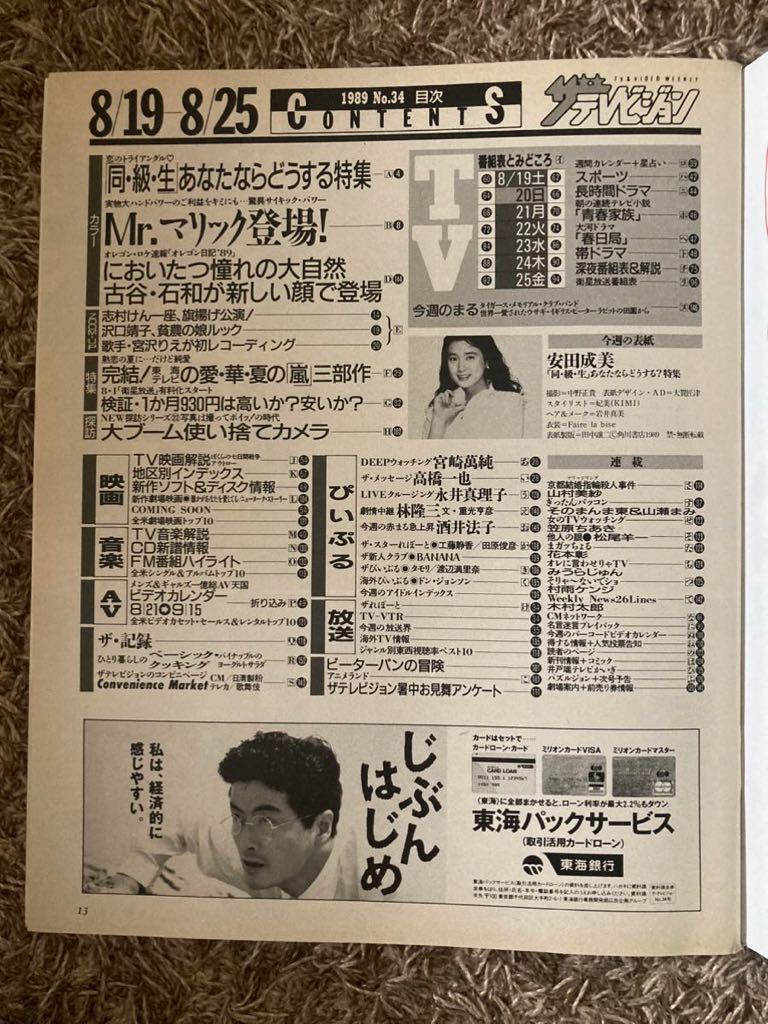 8/19-8/25
1989 No.34 目次
CONTENTS
TV & VIDEO WEEKLY
ザテレビジョン
カラー
恋のトライアングル♡
「同・級・生」あなたならどうする特集 A 4
実物大ハンドパワーのご利益をキミにも…驚異サイキック・パワー
Mr.マリック登場! B 8
オレゴン・ロケ速報「オレゴン日記'89」
においたつ憧れの大自然
古谷・石和が新しい顔で登場 D
志村けん一座、旗揚げ公演!
沢口靖子、貧農の娘ルック
歌手・宮沢りえが初レコーディング
E
特集
熱恋の夏に…だけど純愛
完結!東海テレビの愛・華・夏の「嵐」三部作 F 29
8・1「衛星放送」有料化スタート
検証・1か月930円は高いか?安いか? G 32
探訪
NEW探訪シリーズ㉒写真は撮ってポイッ!の時代
大ブーム使い捨てカメラ H
TV
番組表とみどころ
8/19土
20日
21月
22火
23水
24木
25金
週間カレンダー+星占い
スポーツ
長時間ドラマ
朝の連続テレビ小説
「青春家族」
大河ドラマ
「春日局」
帯ドラマ
深夜番組表&解説
衛星放送番組表
今週のまる
タイガース・メモリアル・クラブ・バンド
世界一愛されたウサギ・イギリス・ピーターラビットの田園から
今週の表紙
安田成美
「同・級・生」あなたならどうする?特集
撮影=中野正貴 表紙デザイン・AD=大貫卓也
スタイリスト=妃美(KIMI)
ヘア&メーク=岩井真美
衣装=Faire la bise
表紙製版=田中謙二Ⓒ角川書店1989 禁・無断転載
映画
TV映画解説 ぼくらの七日間戦争 アウトロー J
地区別インデックス K
新作ソフト&ディスク情報
新作劇場映画●誰かがあなたを愛してる ニューヨーク・ストーリー L
COMING SOON
全米劇場映画トップ10
音楽
TV音楽解説 M
CD新譜情報 N
FM番組ハイライト O
全米シングル&アルバムトップ10
AV
メンズ&ギャルズ一億総AV天国
ビデオカレンダー
8/21➲9/15 折り込み P
全米ビデオカセット・セールス&レンタルトップ10
ザ・記録 Q
ひとり暮らしのベーシック・クッキング パイナップルのヨーグルトサラダ R
ザテレビジョンのコンビニページ
Convenience Market CM/日清製粉 テレカ/歌舞伎 S
ぴいぷる
DEEPウォッチング 宮崎萬純
ザ・メッセージ 高橋一也
LIVEクルージング 永井真理子
劇情中継 林隆三 文・重光亨彦
今週の赤まる急上昇 酒井法子
ザ・スターれぽーと●工藤静香/田原俊彦
ザ新人クラブ●BANANA
ザぴぃぷる●タモリ/渡辺満里奈
海外ぴぃぷる●ドン・ジョンソン
今週のアイドルインデックス
放送
ザれぽーと
TV-VTR
今週の放送界
海外TV情報
ジャンル別東西視聴率ベスト10
ピーターパンの冒険
アニメランド
ザテレビジョン暑中お見舞アンケート
連載
京都結婚指輪殺人事件
山村美紗
ぎったんバッコン
そのまんま東&山瀬まみ
女のTVウォッチング
笠原ちあき
他人の眼● 松尾羊一
まガッちょる
花本彰
オレに言わせりゃTV
みうらじゅん
そりゃ〜ないでショ
村雨ケンジ
Weekly News26Lines
木村太郎
CMネットワーク
名言迷言プレイバック
今週のバーコードビデオカレンダー
得する情報+人気投票告知
読者のページ
新刊情報+コミック
井戸端テレビかいぎ
パズルジョン+次号予告
劇場案内+前売り券情報
私は、経済的に
感じやすい。
じぶん
はじめ
カードはセットで……
カードローン・カード ミリオンカードVISA ミリオンカードマスター
CARD LOAN
〈東海〉に全部まかせると、ローン利率が最大2.2%もダウン。
東海パックサービス
(取引活用カードローン)
東海銀行
東海パックサービス(取引活用カードローン)の資料を差し上げます。
資料請求券
ザ・テレビジョン
No.34号
13